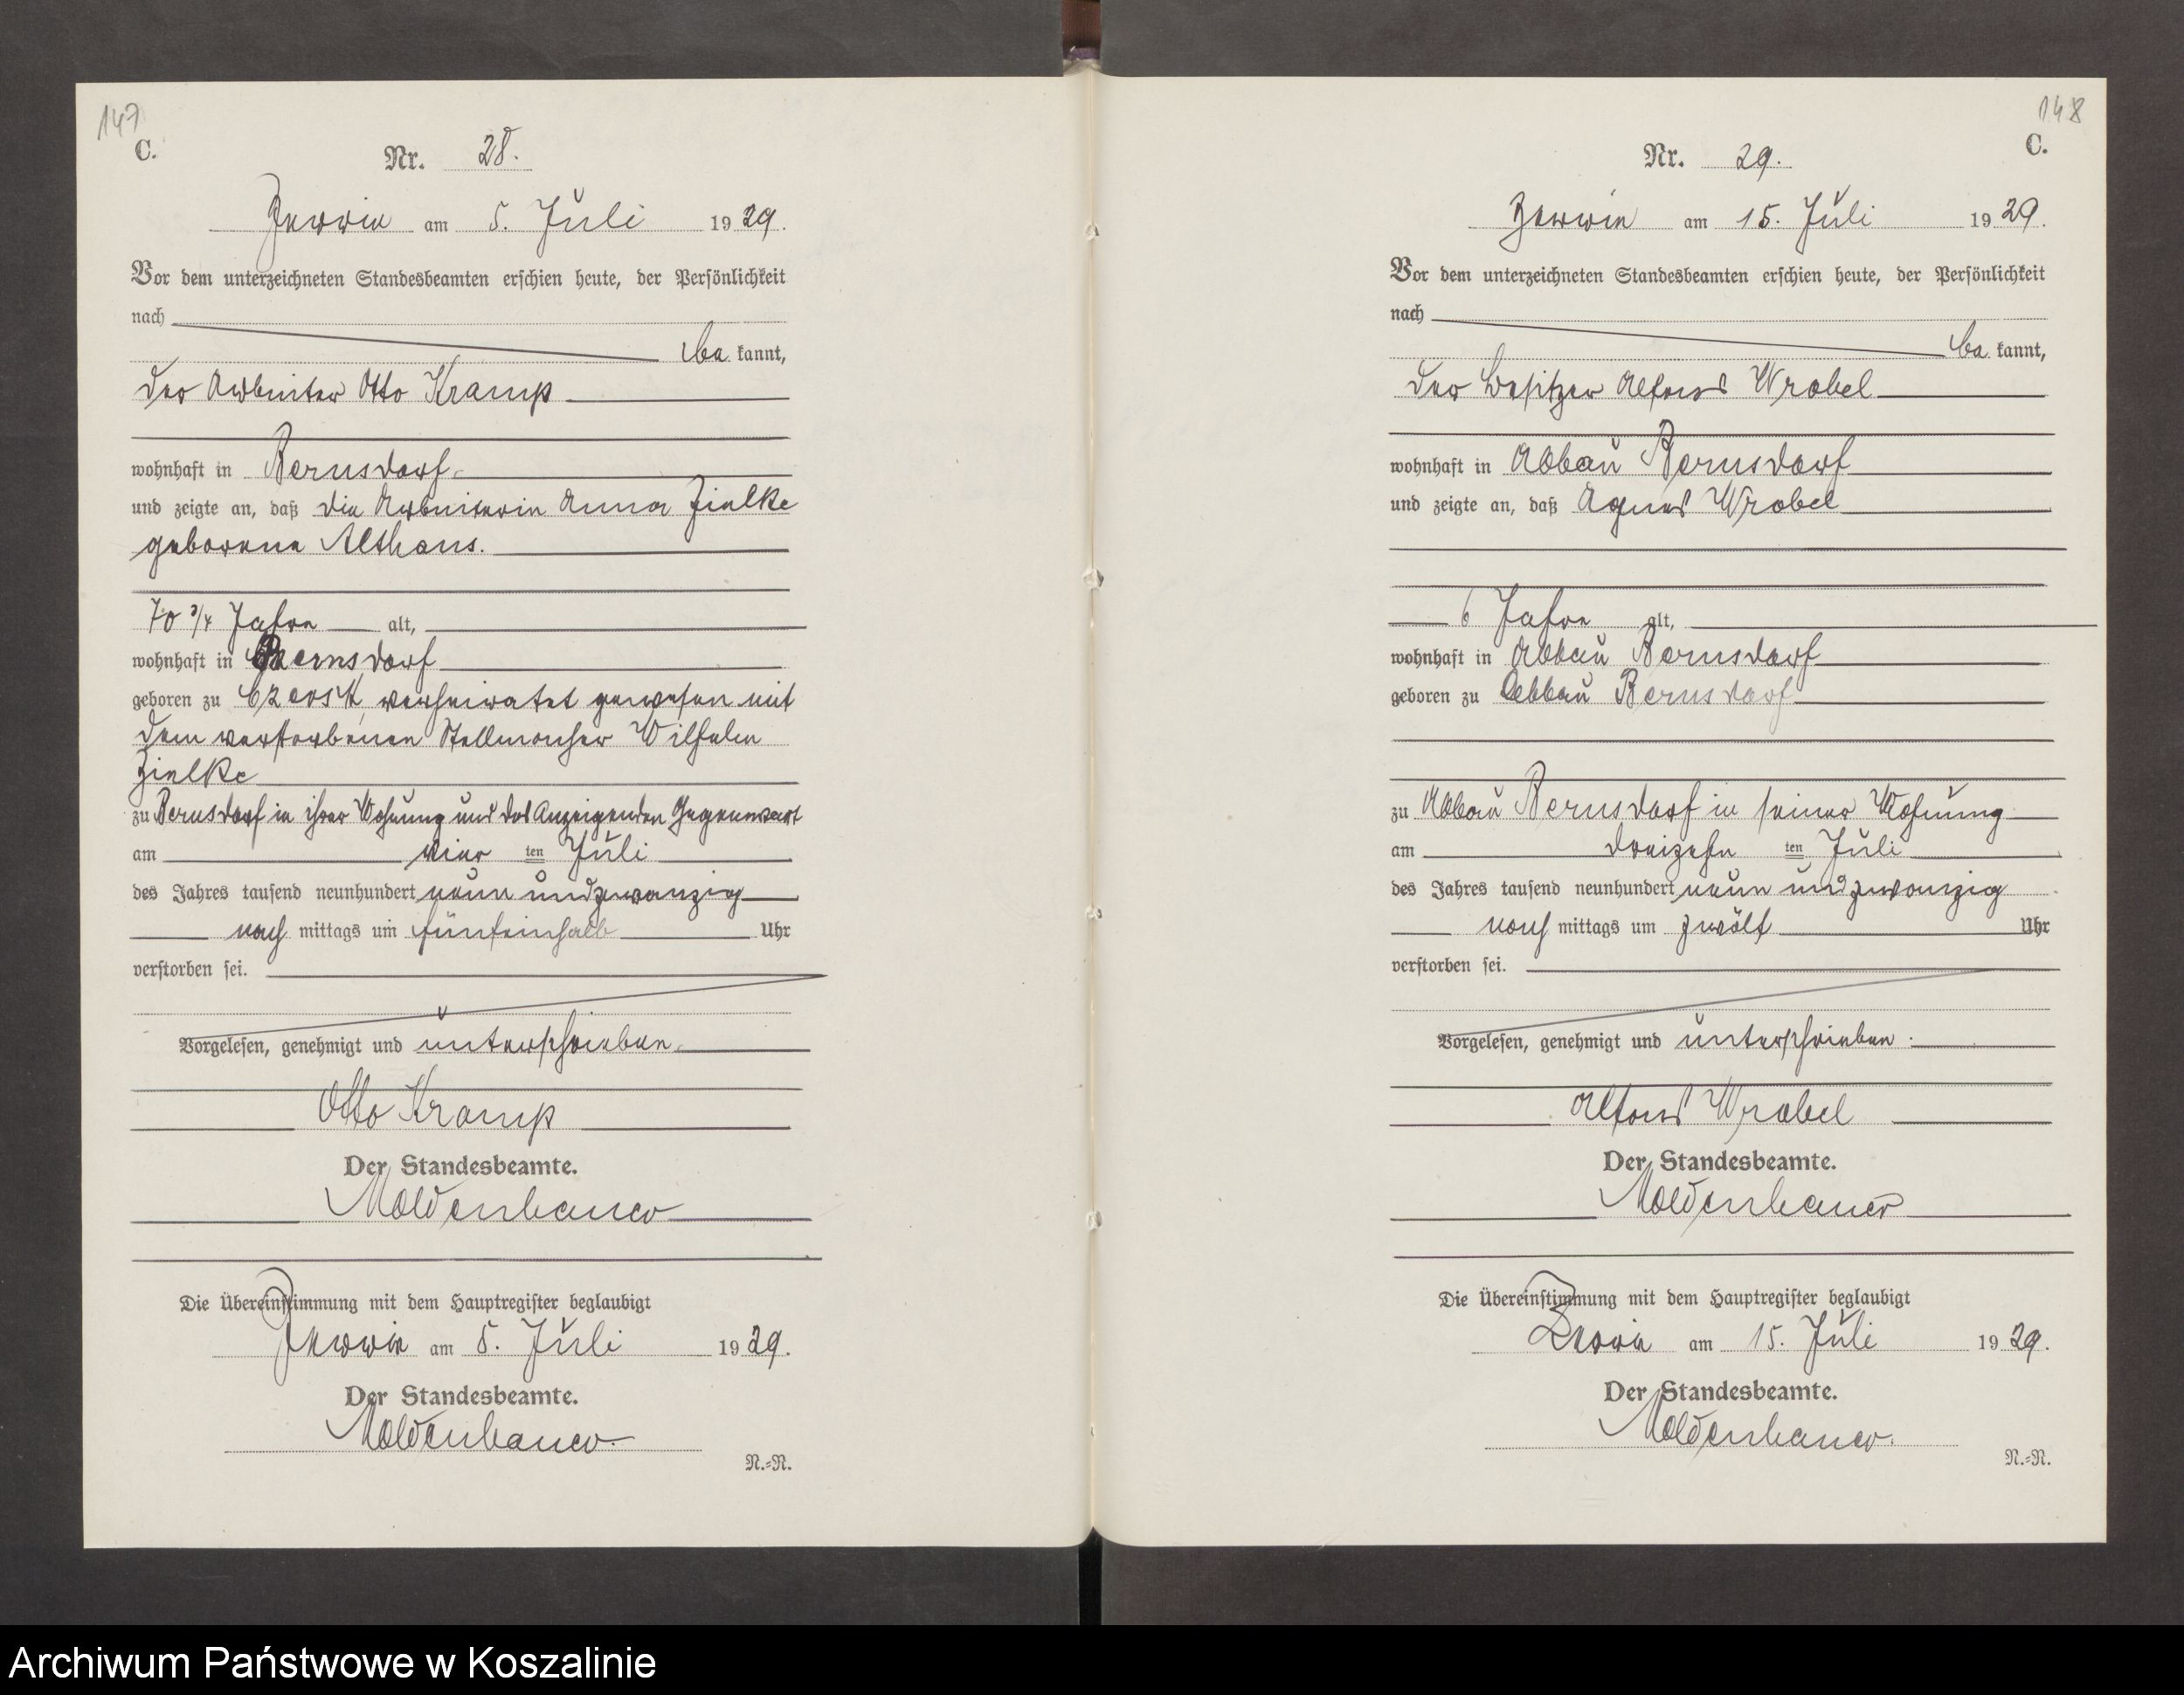 147
C.
Nr. 28.
Zerrin am 5. Juli 1929.
Vor dem unterzeichneten Standesbeamten erschien heute, der Persönlichkeit
nach
be kannt,
der Arbeiter Otto Kramp
wohnhaft in Bernsdorf.
und zeigte an, daß die Arbeiterin Anna Zielke
geborene Althaus.
70 3/4 Jahre alt,
wohnhaft in Bernsdorf
geboren zu Czersk, verheiratet gewesen mit
dem verstorbenen Stellmacher Wilhelm
Zielke
zu Bernsdorf in ihrer Wohnung und des Anzeigenden Gegenwart
am vier ten Juli
des Jahres tausend neunhundert neun und zwanzig
nach mittags um fünfeinhalb Uhr
verstorben sei.
Vorgelesen, genehmigt und unterschrieben.
Otto Kramp
Der Standesbeamte.
Moldenhauer
Die Übereinstimmung mit dem Hauptregister beglaubigt
Zerrin am 5. Juli 1929.
Der Standesbeamte.
Moldenhauer.
N.=N.
148
C.
Nr. 29.
Zerrin am 15. Juli 1929.
Vor dem unterzeichneten Standesbeamten erschien heute, der Persönlichkeit
nach
be kannt,
der Besitzer Alfons Wrobel
wohnhaft in Abbau Bernsdorf
und zeigte an, daß Agnes Wrobel
6 Jahre alt,
wohnhaft in Abbau Bernsdorf
geboren zu Abbau Bernsdorf
zu Abbau Bernsdorf in seiner Wohnung
am dreizehn ten Juli
des Jahres tausend neunhundert neun und zwanzig
nach mittags um zwölf Uhr
verstorben sei.
Vorgelesen, genehmigt und unterschrieben.
Alfons Wrobel
Der Standesbeamte.
Moldenhauer
Die Übereinstimmung mit dem Hauptregister beglaubigt
Zerrin am 15. Juli 1929.
Der Standesbeamte.
Moldenhauer.
N.=N.
Archiwum Państwowe w Koszalinie